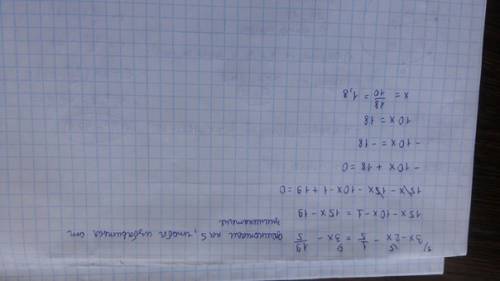 1) 3x - 2x - 1/5 = 3x - 19/5 домножаем на 5, чтобы избавиться от
знаменателя.
15x - 10x - 1 = 15x - 19
15x - 15x - 10x - 1 + 19 = 0
- 10x + 18 = 0
- 10x = - 18
10x = 18
x = 18/10 = 1,8